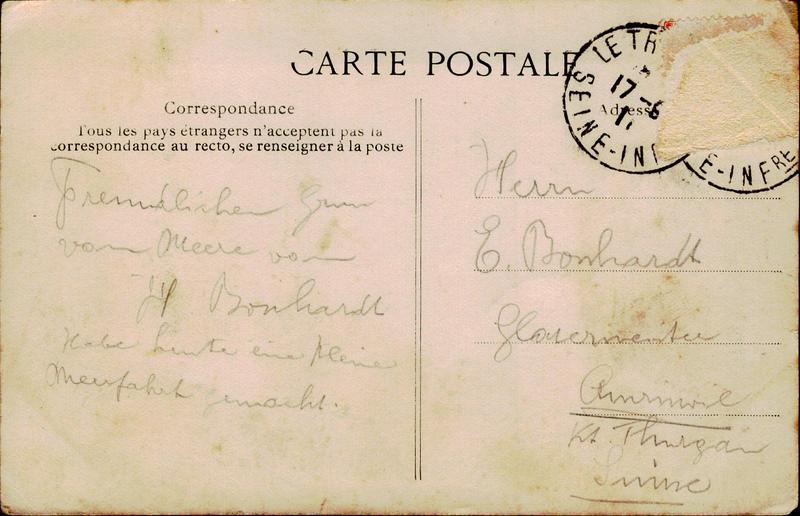 CARTE POSTALE
Correspondance
Tous les pays étrangers n'acceptent pas la
correspondance au recto, se renseigner à la poste
Adresse
LE TR
17-6
SEINE-INF
E-INFRE
Freundlichen Gruss
vom Meere von
H Bonhardt
Habe heute eine kleine
Meerfahrt gemacht.
Herrn
E. Bonhardt
Glasermeister
Amriswil
Kt. Thurgau
Suisse